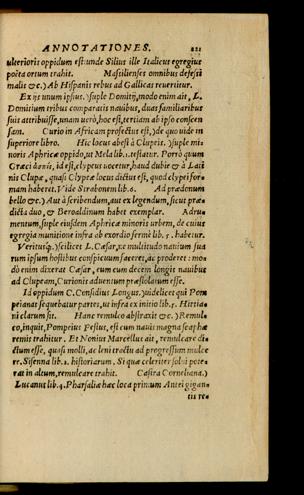 ANNOTATIONES. 221
ulterioris oppidum est: unde Silius ille Italicus egregius
poëta ortum trahit. Massilienses omnibus defessi
malis &c.) Ab Hispanis rebus ad Gallicas revertitur.
Ex ijs unum ipsius.) suple Domitij, modo enim ait, L.
Domitium tribus comparatis navibus, duas familiaribus
suis attribuisse, unam vero, hoc est, tertiam ab ipso conscen
sam. Curio in Africam profectus est,) de quo vide in
superiore libro. Hic locus abest à Clupeis.) suple mi
noris Aphricæ oppido, ut Mela lib. 1. testatur. Porrò quum
Græci ἀσπὶς, id est, clypeus vocetur, haud dubiè & à Lati
nis Clupæ, quasi Clypeæ locus dictus est, quod clypei for
mam haberet. Vide Strabonem lib. 6. Ad prædonum
bello &c.) Aut à scribendum, aut ex legendum, sicut præ-
dicta duo, & Beroaldinum habet exemplar. Adru-
mentum, suple eiusdem Aphricæ minoris urbem, de cuius
egregia munitione infra ab exordio fermè lib. 5. habetur.
Veritusq́;.) scilicet L. Cæsar, ex multitudo navium sua
rum ipsum hostibus conspicuum faceret, ac proderet: mo-
dò enim dixerat Cæsar, eum cum decem longis navibus
ad Clupeam, Curionis adventum præsensisse esse.
Id oppidum C. Considius Longus.) videlicet qui Pom
peianas sequebatur partes, ut infra ex initio lib. 5. Hirtia-
ni clarum sit. Hanc remulco abstraxit &c.) Remul-
co, inquit, Pompeius Festus, est cum navis magna scaphæ
remis trahitur. Et Nonius Marcellus ait, remulcare di-
ctum esse, quasi molli, ac leni tractu ad progressum mulce
re. Sisenna lib. 2. historiarum. Si qua celeriter solvi pote-
rat in altum, remulcare trahit. Castra Corneliana.)
Lucanus lib. 4. Pharsaliæ hæc loca primum Antei gigan-
tis re-